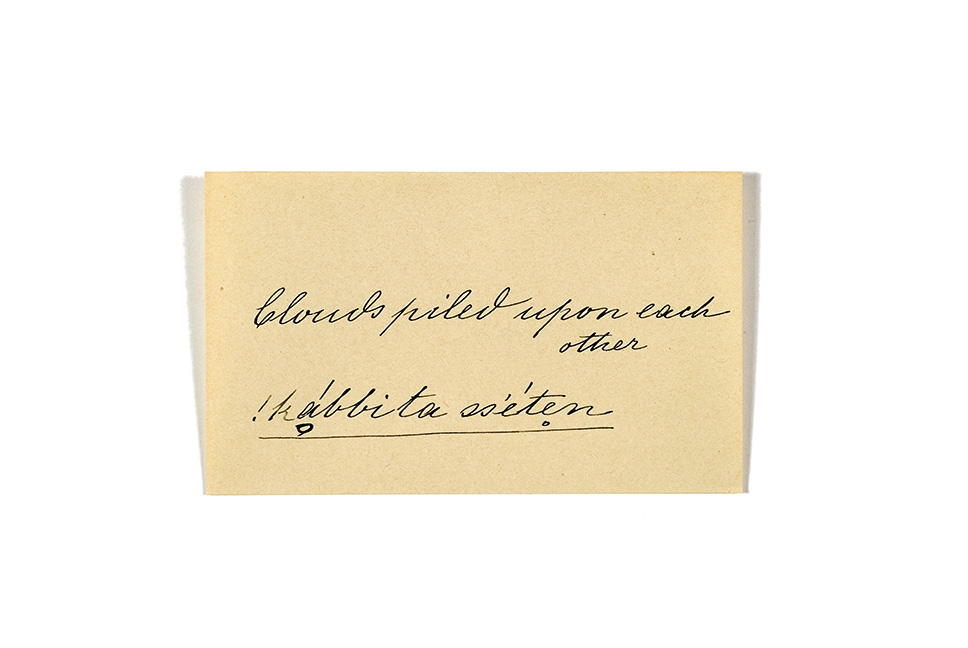 Clouds piled upon each
other
!kạ́bbi ta ssʼéṭen